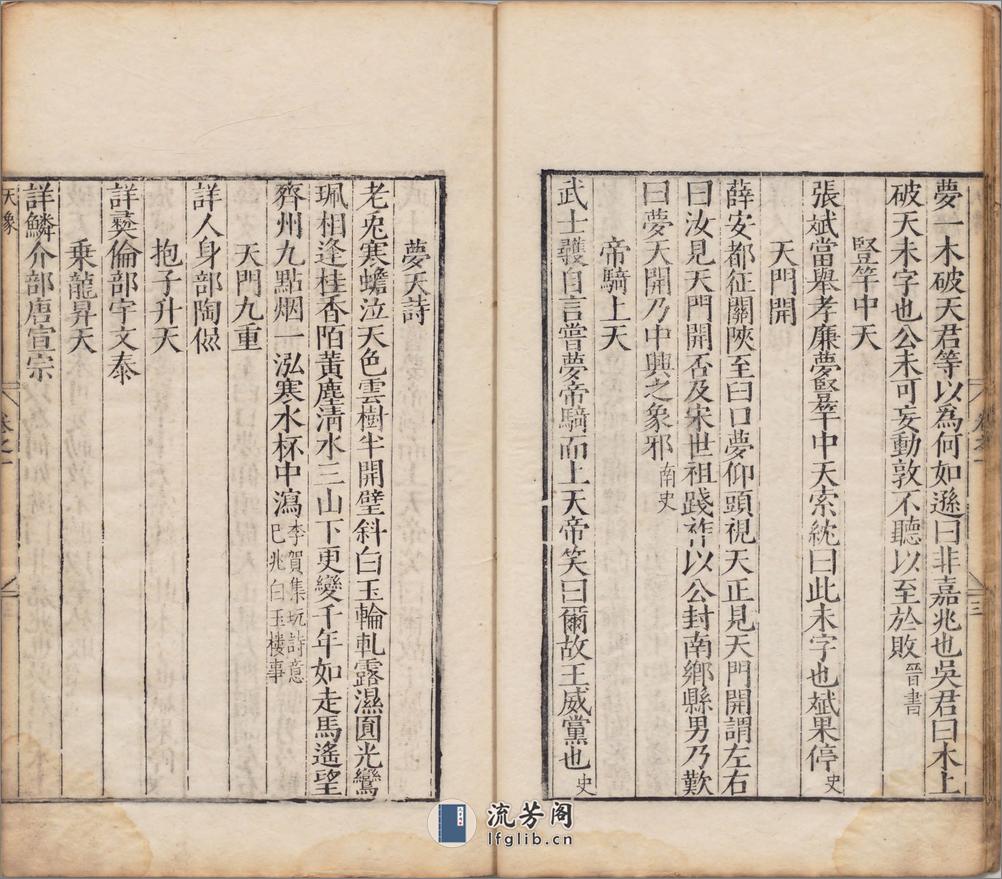 夢一木破天君等以爲何如遜曰非嘉兆也吳君曰木上
破天未字也公未可妄動敦不聽以至於敗晉書
豎竿中天
張斌當舉孝廉夢豎竿中天索紞曰此未字也斌果停史
天門開
薛安都征關陝至臼口夢仰頭視天正見天門開謂左右
曰汝見天門開否及宋世祖踐祚以公封南鄉縣男乃歎
曰夢天開乃中興之象邪南史
帝騎上天
武士彠自言嘗夢帝騎而上天帝笑曰爾故王威黨也史
夢天詩
老兎寒蟾泣天色雲樹半開壁斜白玉輪軋露濕圓光鸞
珮相逢桂香陌黃塵清水三山下更變千年如走馬遙望
齊州九點烟一泓寒水杯中瀉李賀集玩詩意
已兆白玉樓事
天門九重
詳人身部陶侃
抱子升天
詳彞倫部宇文泰
乘龍昇天
詳鱗介部唐宣宗
天象
卷之一
三
流芳阁
lfglib.cn